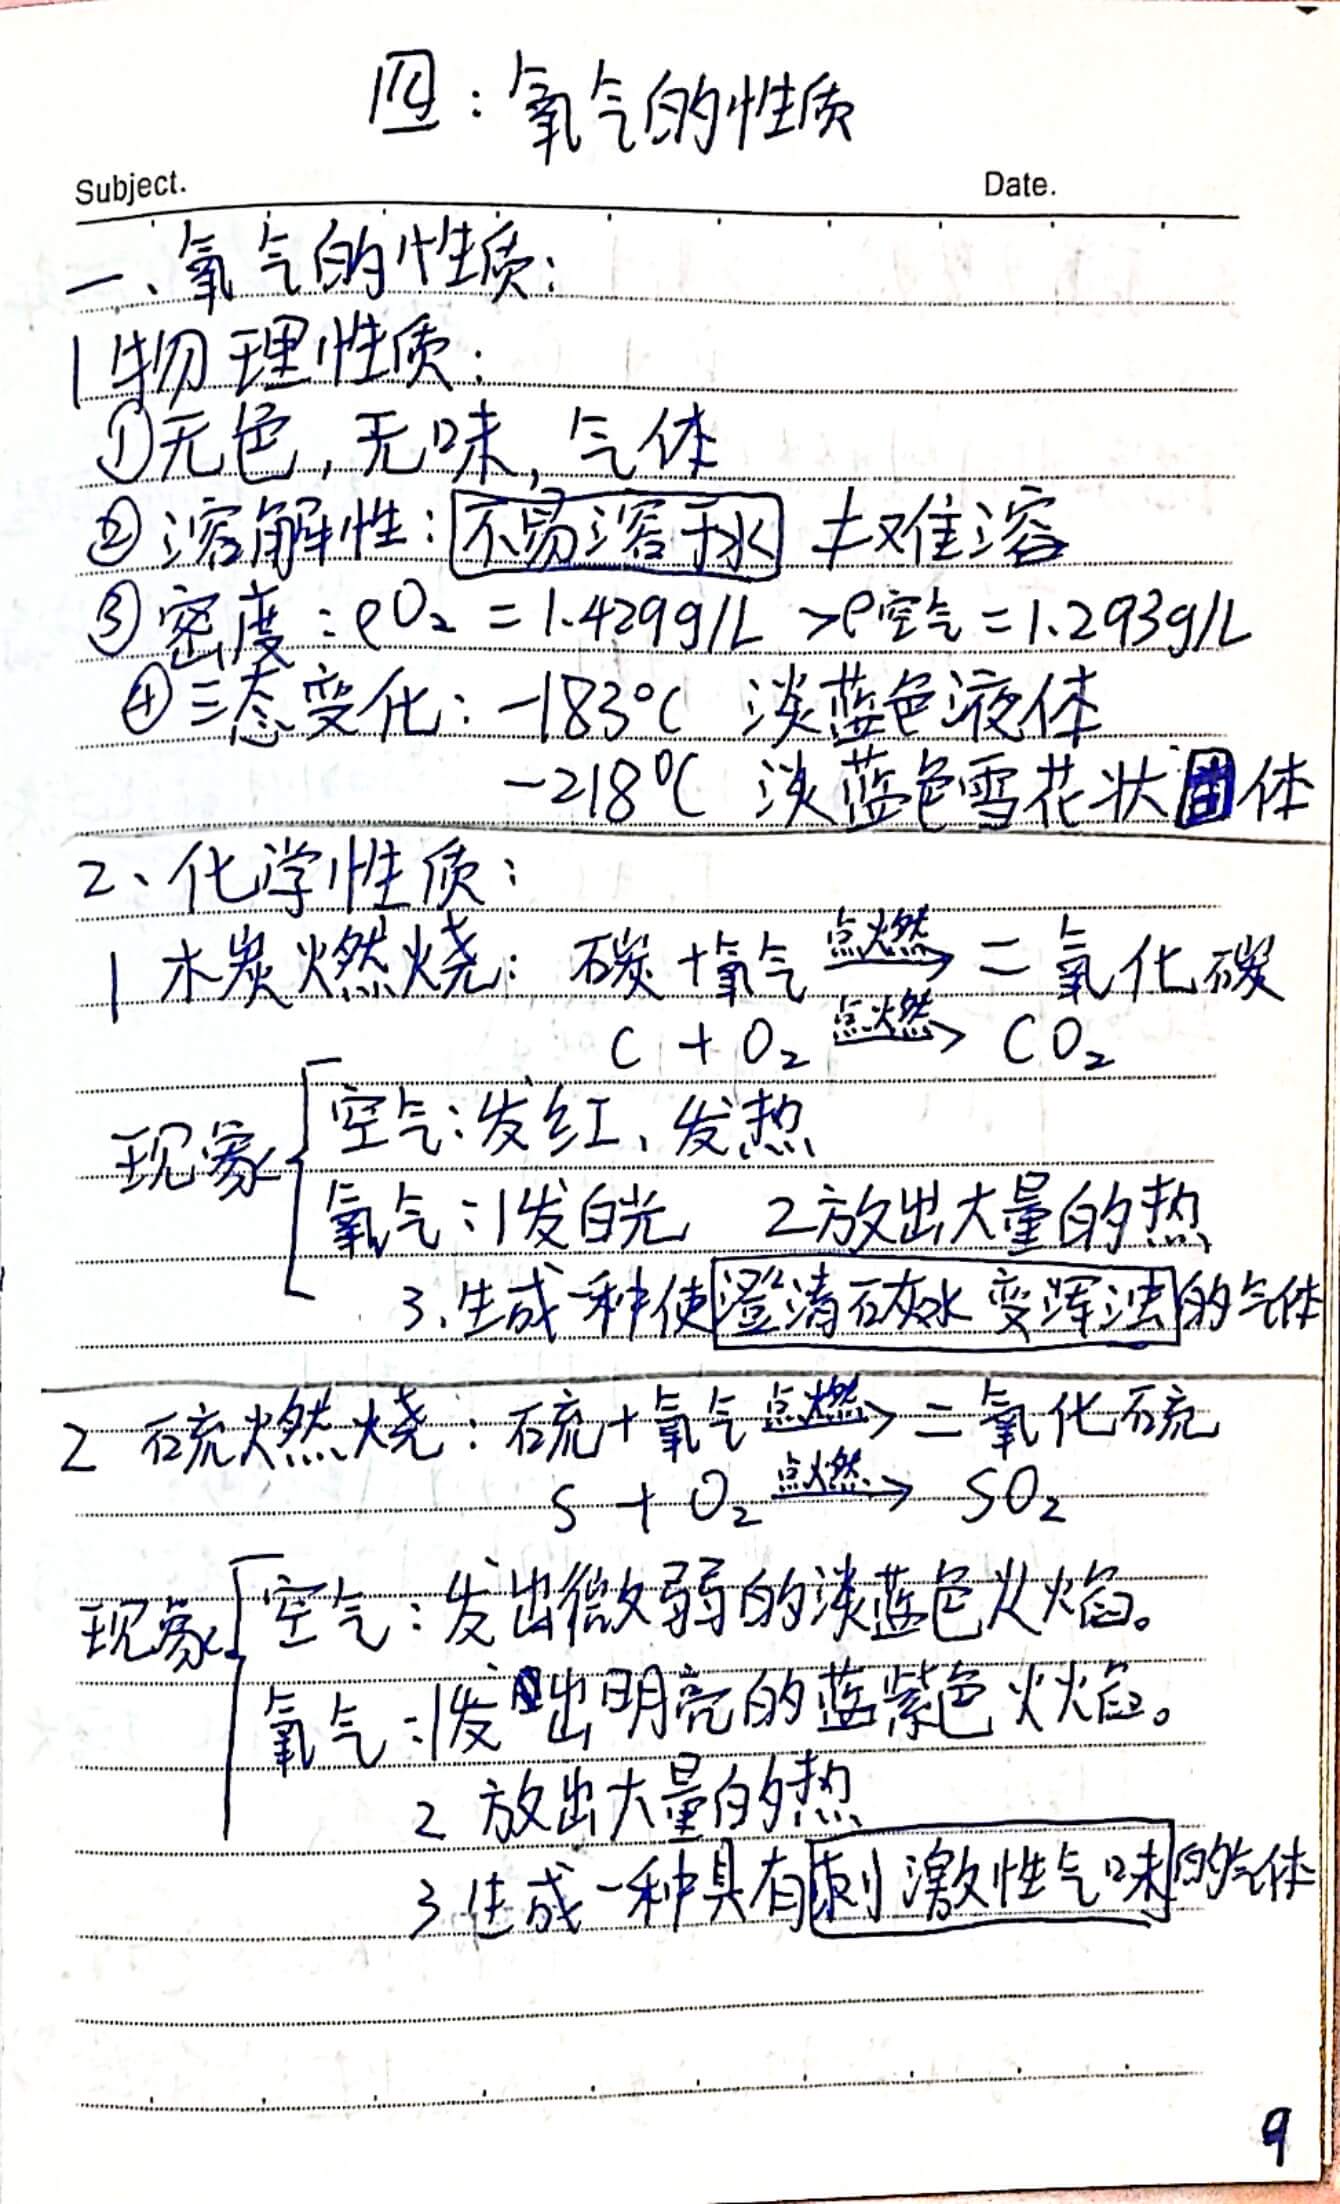 四:氧气的性质
Subject. Date.
一、氧气的性质:
1物理性质:
①无色,无味,气体
②溶解性:不易溶于水 ≠难溶
③密度:ρO₂=1.429g/L >ρ空气=1.293g/L
④三态变化:-183℃ 淡蓝色液体
-218℃ 淡蓝色雪花状固体
2、化学性质:
1 木炭燃烧: 碳+氧气 点燃→ 二氧化碳
C + O₂ 点燃→ CO₂
现象
空气:发红、发热
氧气:1发白光 2放出大量的热
3.生成一种使澄清石灰水变浑浊的气体
2 硫燃烧:硫+氧气 点燃→ 二氧化硫
S + O₂ 点燃→ SO₂
现象
空气:发出微弱的淡蓝色火焰。
氧气:1发出明亮的蓝紫色火焰。
2 放出大量的热
3.生成一种具有刺激性气味的气体
9